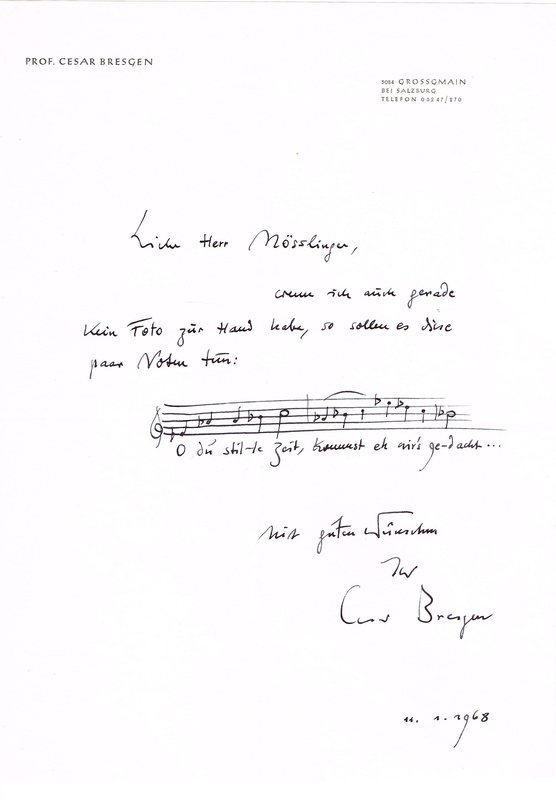 PROF. CESAR BRESGEN
5084 GROSSGMAIN
BEI SALZBURG
TELEFON 06247/270
Lieber Herr Nösslinger,
wenn ich auch gerade
kein Foto zur Hand habe, so sollen es diese
paar Noten tun:
O du stil-le Zeit, kommst eh wir's ge-dacht...
Mit guten Wünschen
Ihr
Cesar Bresgen
11. 1. 1968